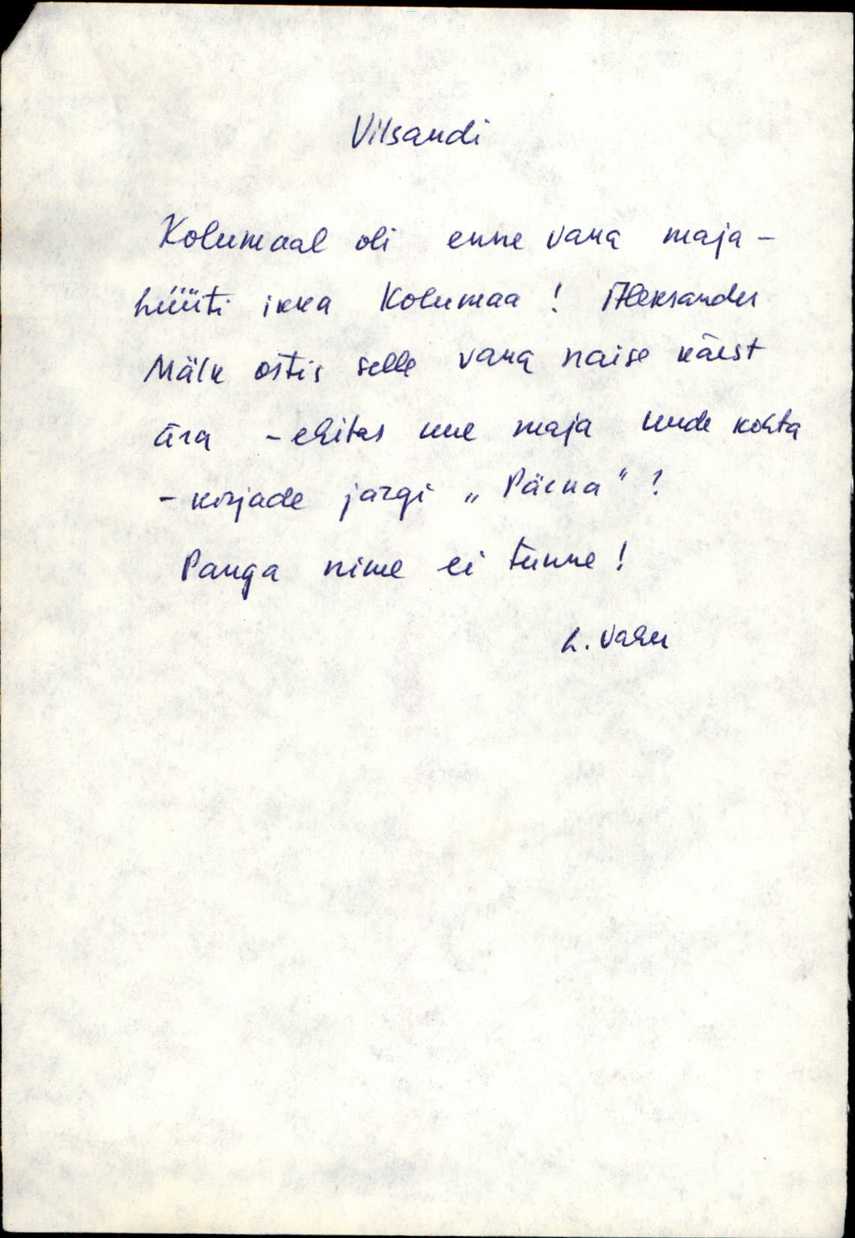 Vilsandi
Kolumaal oli enne vana maja -
hüüti ikka Kolumaa ! Aleksander
Mälk ostis selle vana naise käest
ära - ehitas uue maja uude kohta
- kirjade järgi „ Päena " ?
Panga nime ei tunne !
L. Vaher